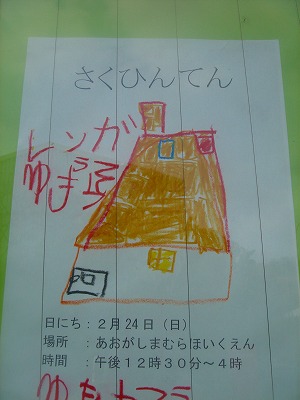 さくひんてん
レンガ
日にち：２月２４日（日）
場所　：あおがしまむらほいくえん
時間　：午後１２時３０分～４時